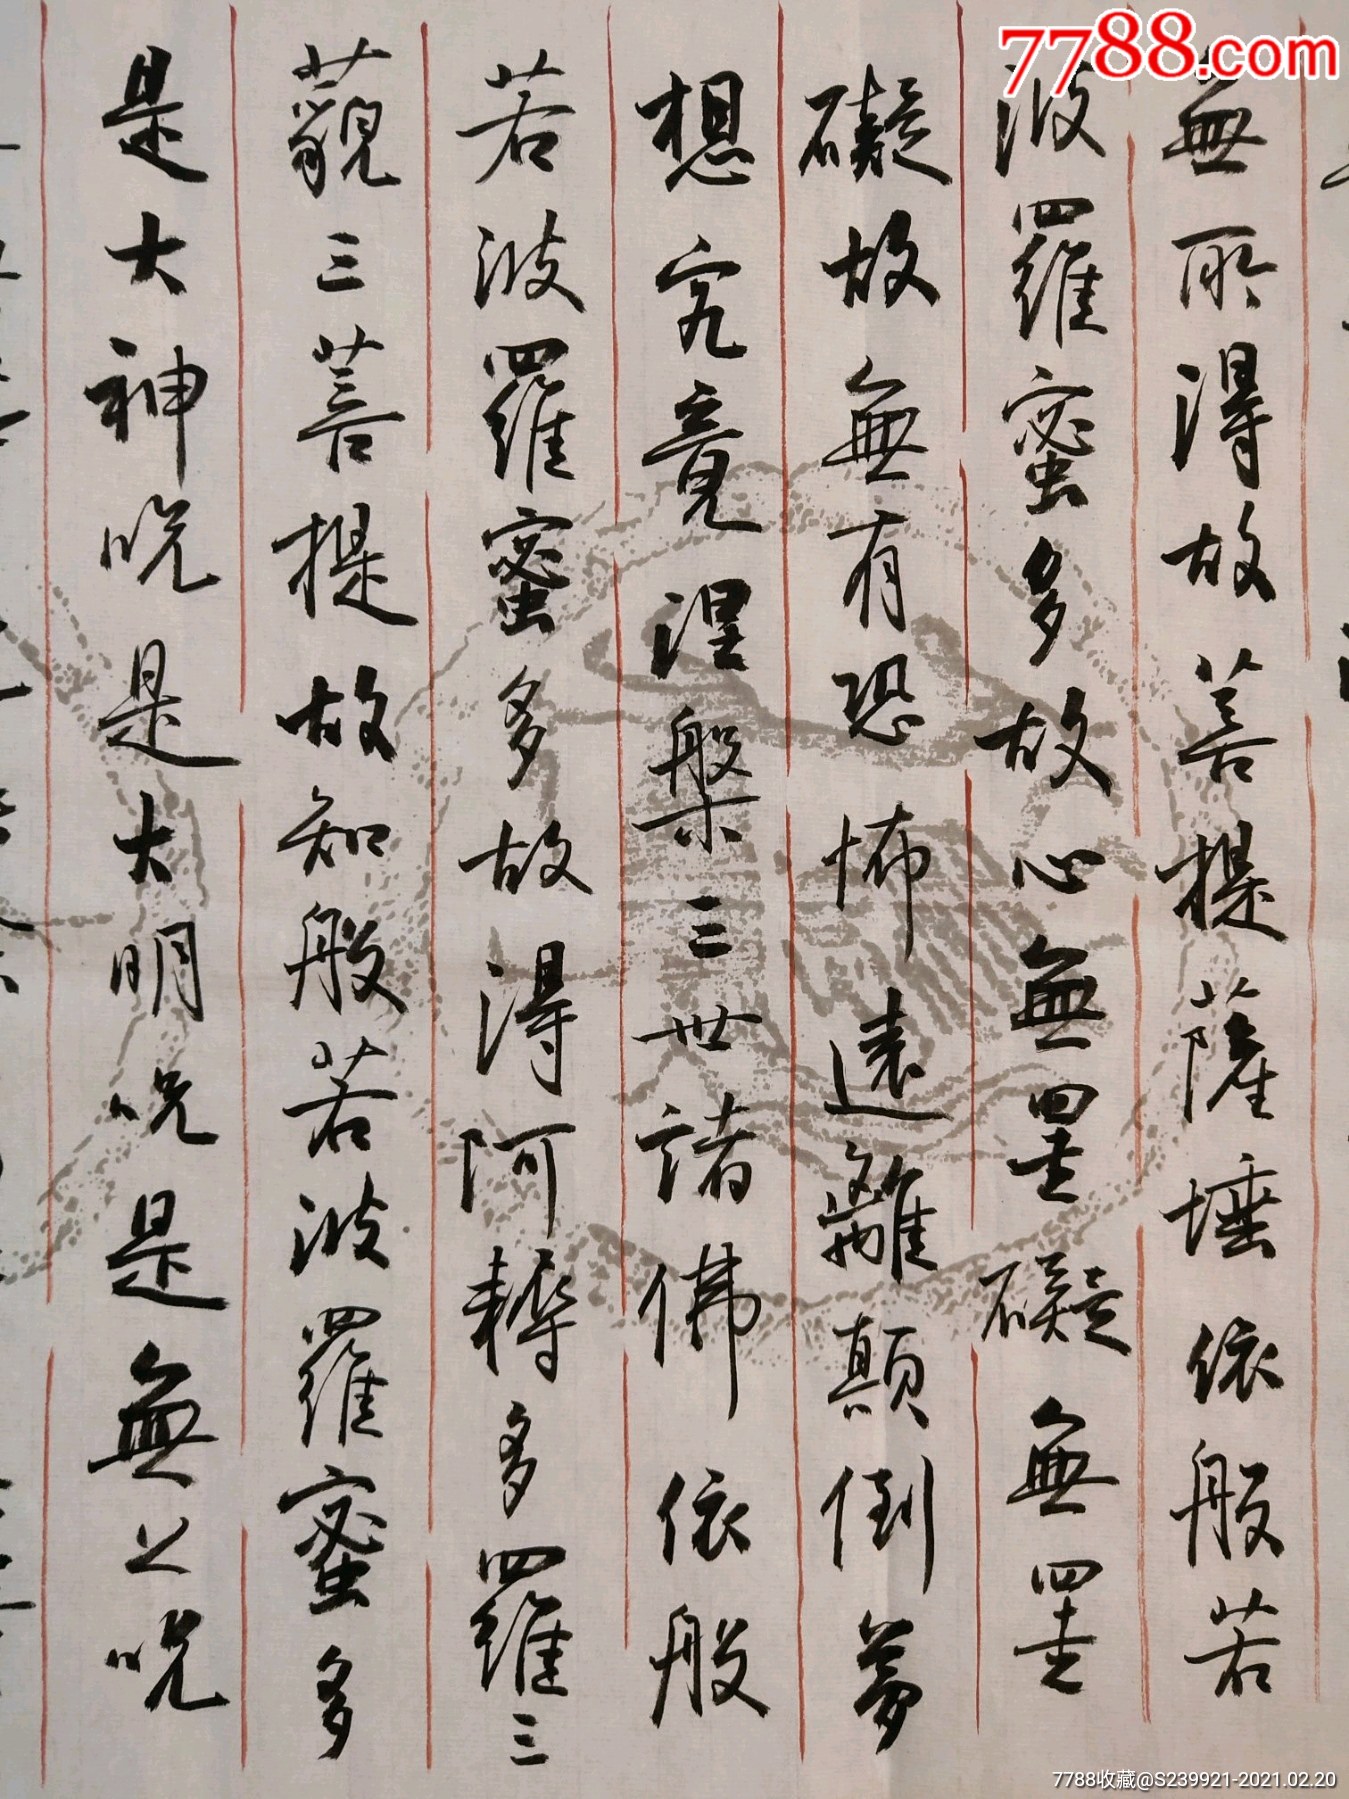 7788.com
無所得故菩提薩埵依般若
波羅蜜多故心無罣礙無罣
礙故無有恐怖遠離顛倒夢
想究竟涅槃三世諸佛依般
若波羅蜜多故得阿耨多羅三
藐三菩提故知般若波羅蜜多
是大神呪是大明呪是無上呪
7788收藏@S239921-2021.02.20